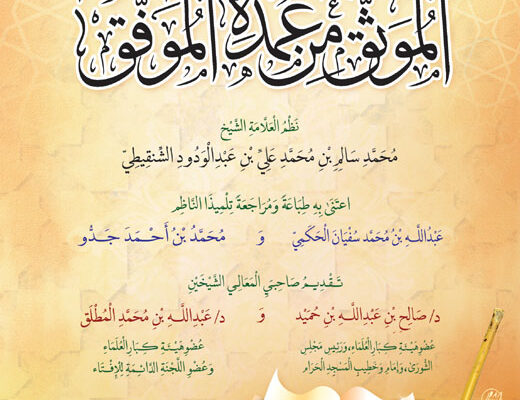 المُوَثَّقُ مِنْ عُمْدَةِ المُوَفَّقِ
نَظْمُ الْعَلَّامَةِ الشَّيْخِ
مُحَمَّد سَالِمِ بْنِ مُحَمَّد عَلِيِّ بْنِ عَبْدِالْوَدُودِ الشَّنْقِيطِيِّ
اعتَنَىٰ بِهِ طِبَاعَةً وَمُرَاجَعَةً تِلْمِيذَا النَّاظِمِ
عَبْدُاللَّهِ بْنُ مُحَمَّد سُفْيَان الْحَكَمِيُّ وَ مُحَمَّدُ بْنُ أَحْمَدَ جَدُّو
تَقْدِيمُ صَاحِبَيِ الْمَعَالِي الشَّيْخَيْنِ
د/ صَالِحِ بْنِ عَبْدِاللَّهِ بْنِ حُمَيْدٍ وَ د/ عَبْدِاللَّهِ بْنِ مُحَمَّدٍ الْمُطْلَقِ
عُضْوِ هَيْئَةِ كِبَارِ الْعُلَمَاءِ، وَرَئِيسِ مَجْلِسِ عُضْوِ هَيْئَةِ كِبَارِ الْعُلَمَاءِ
الشُّورَىٰ، وَإِمَامِ وَخَطِيبِ الْمَسْجِدِ الْحَرَامِ وَعُضْوِ اللَّجْنَةِ الدَّائِمَةِ لِلْإِفْتَاءِ